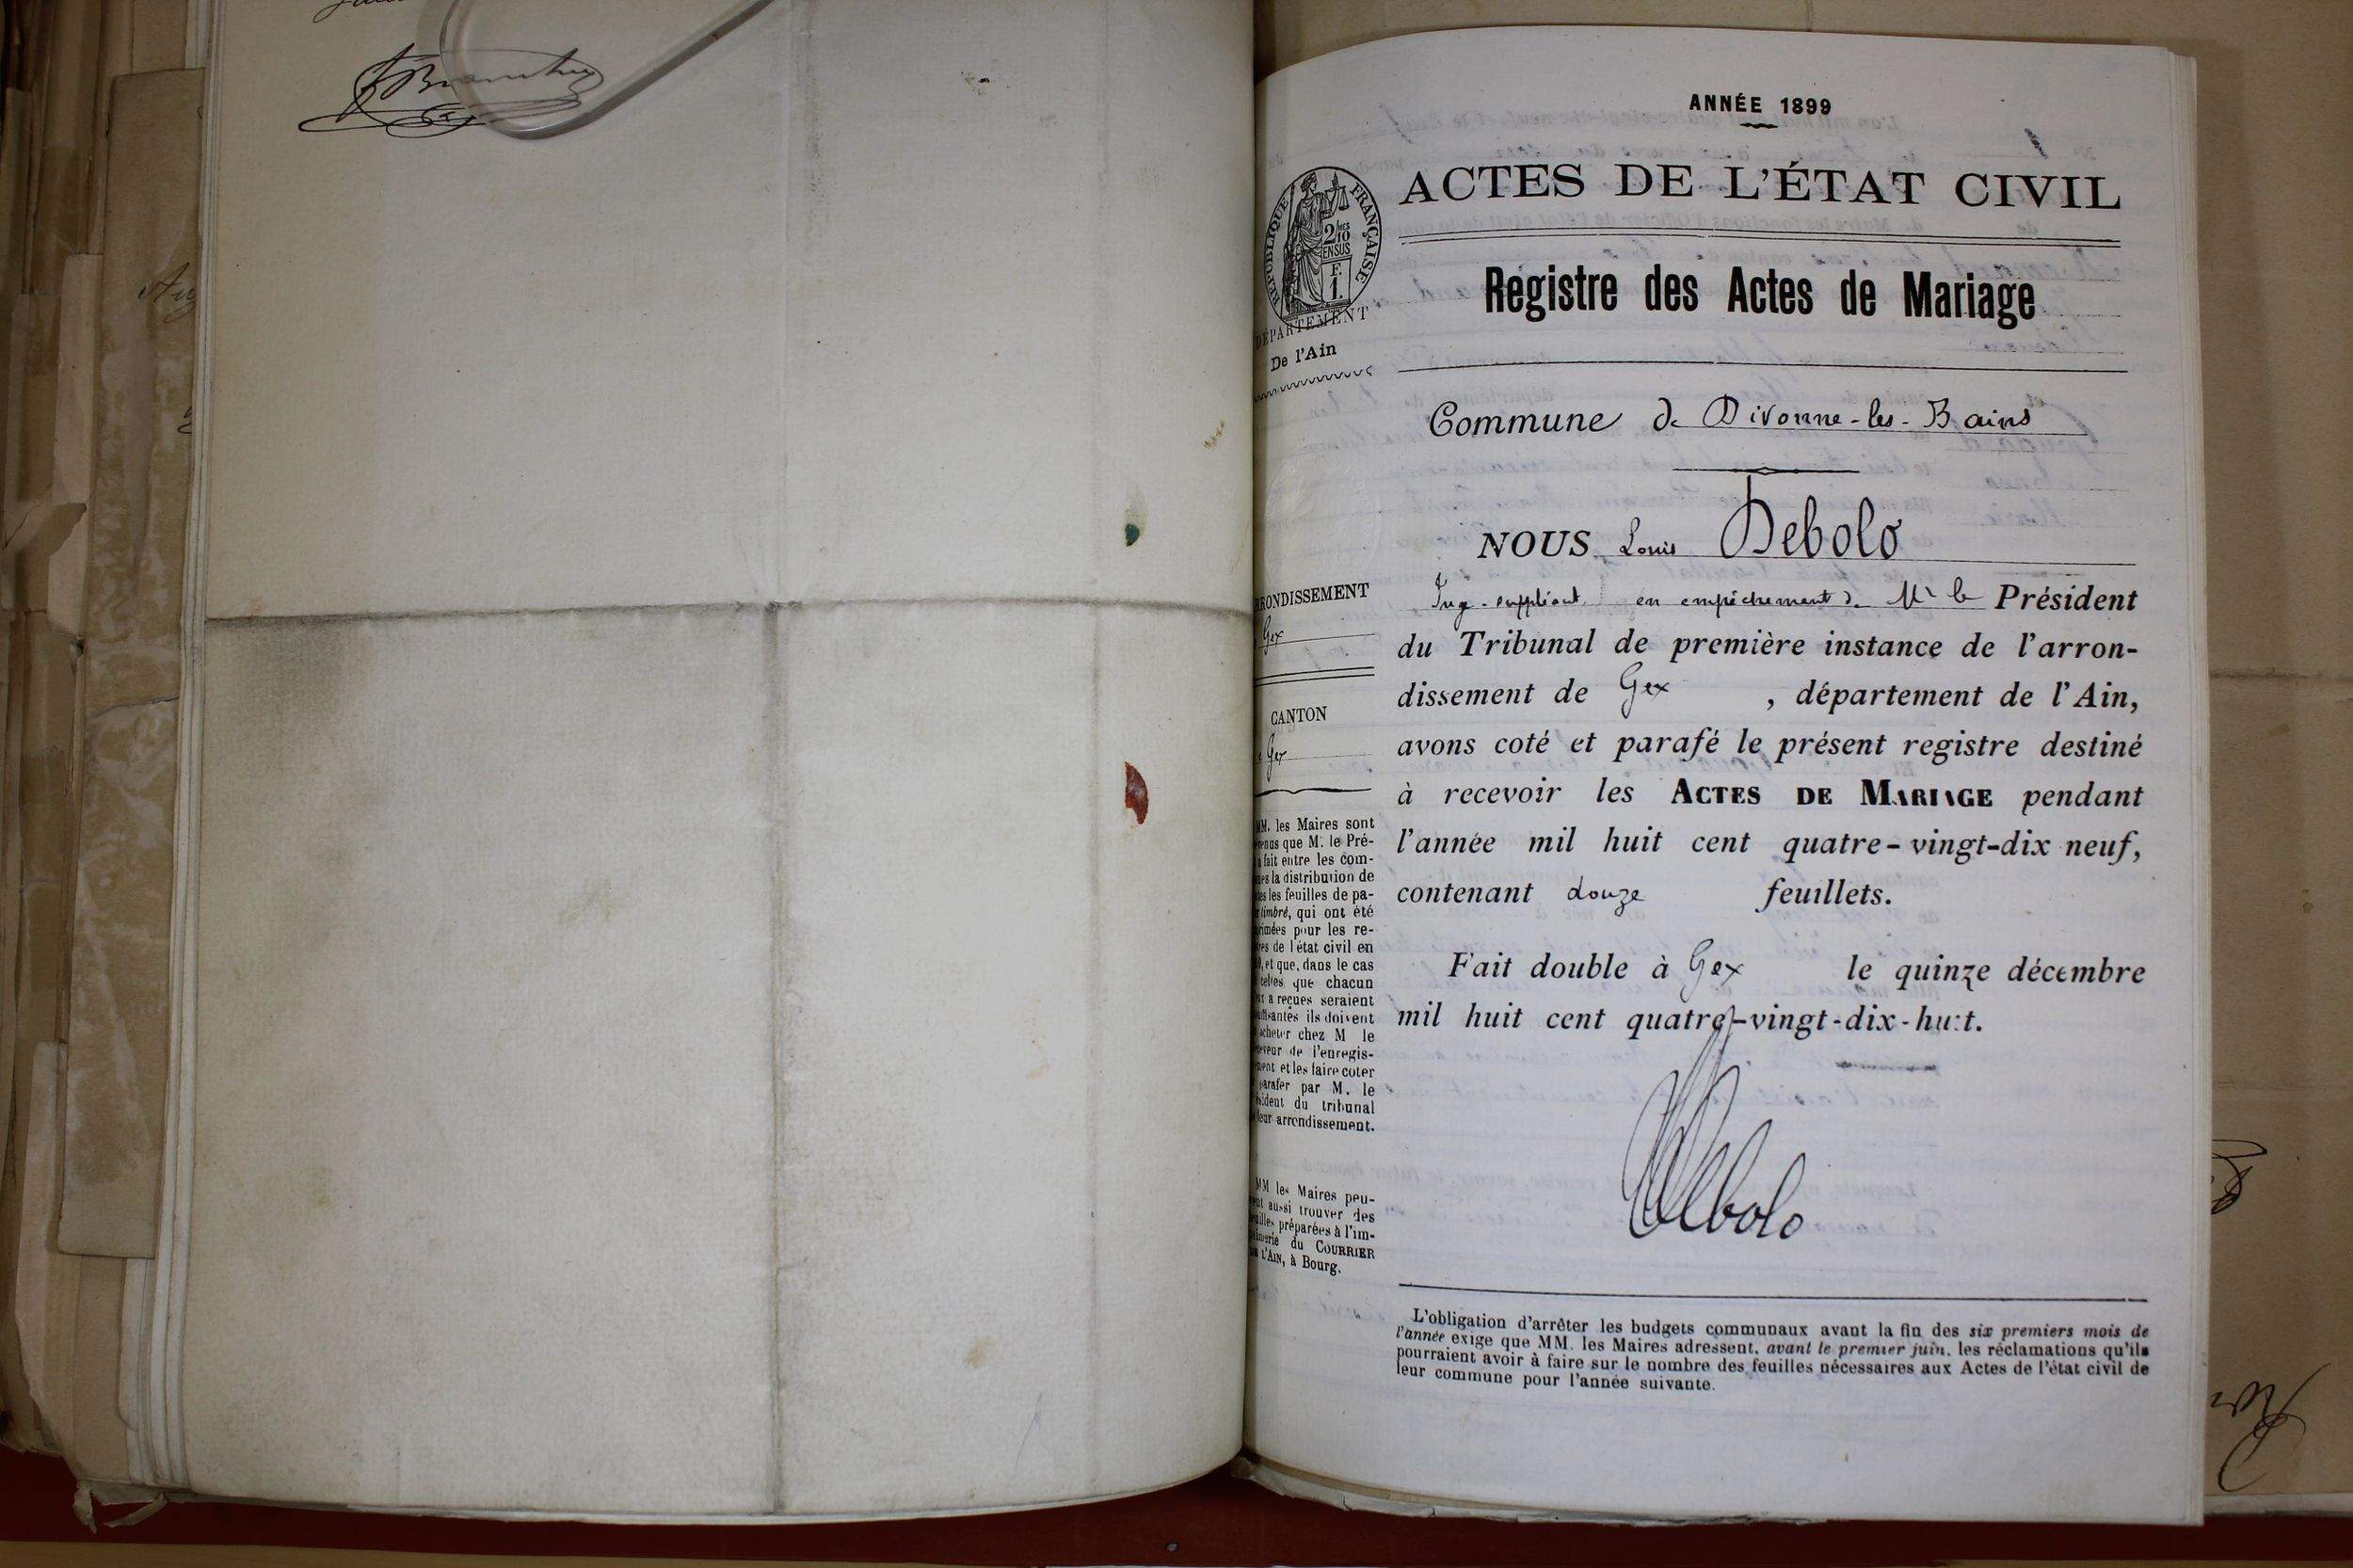 ANNÉE 1899
ACTES DE L'ÉTAT CIVIL
RÉPUBLIQUE FRANÇAISE
2/10
EN SUS
F.
1.
DÉPARTEMENT
De l'Ain
Registre des Actes de Mariage
Commune de Divonne-les-Bains
NOUS Louis Debolo
Juge-suppléant, en empêchement de Mr le Président
du Tribunal de première instance de l'arron-
dissement de Gex, département de l'Ain,
avons coté et parafé le présent registre destiné
à recevoir les ACTES DE MARIAGE pendant
l'année mil huit cent quatre-vingt-dix neuf,
contenant douze feuillets.
Fait double à Gex le quinze décembre
mil huit cent quatre-vingt-dix-huit.
Debolo
RRONDISSEMENT
Gex
CANTON
Gex
MM. les Maires sont
que M. le Pré-
a fait entre les com-
la distribution de
les feuilles de pa-
timbré, qui ont été
pour les re-
de l'état civil en
, et que, dans le cas
celles que chacun
a reçues seraient
ils doivent
acheter chez M le
de l'enregis-
et les faire coter
parafer par M. le
du tribunal
leur arrondissement.
MM les Maires peu-
aussi trouver des
préparées à l'im-
du COURRIER
L'AIN, à Bourg.
L'obligation d'arrêter les budgets communaux avant la fin des six premiers mois de
l'année exige que MM. les Maires adressent, avant le premier juin, les réclamations qu'ils
pourraient avoir à faire sur le nombre des feuilles nécessaires aux Actes de l'état civil de
leur commune pour l'année suivante.